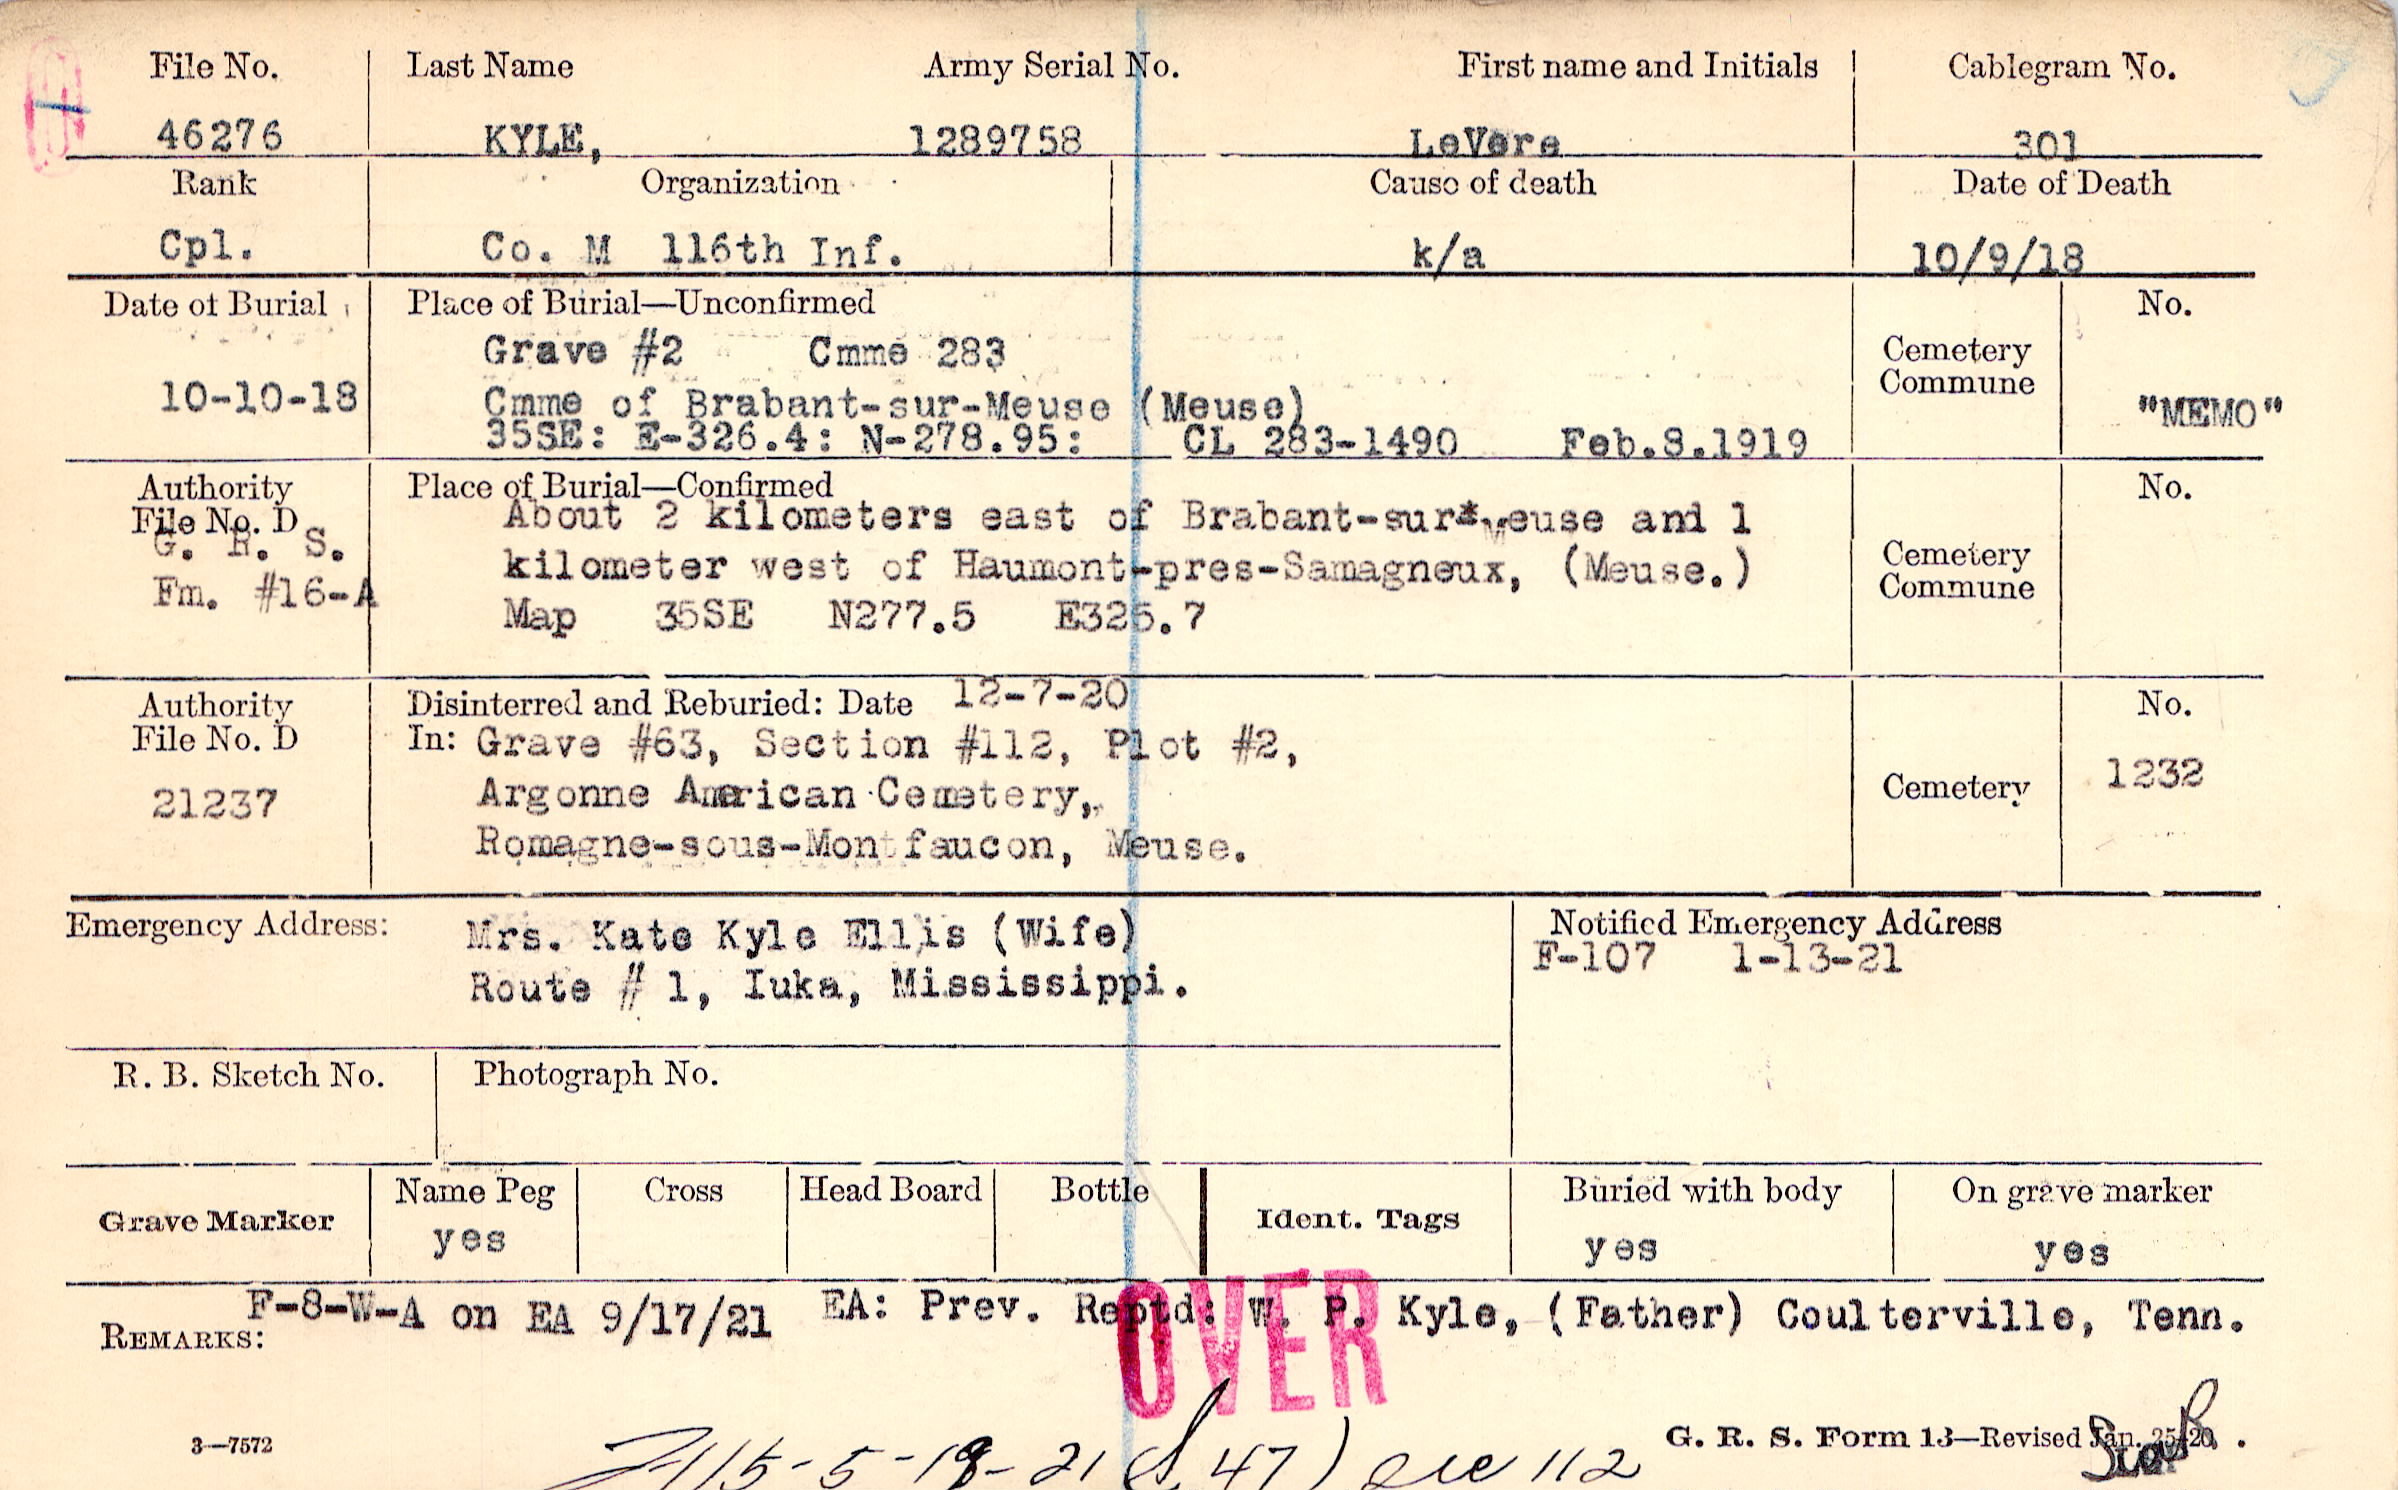 File No. Last Name Army Serial No. First name and Initials Cablegram No.
46276 KYLE, 1289758 LeVere 301
Rank Organization Cause of death Date of Death
Cpl. Co. M 116th Inf. k/a 10/9/18
Date of Burial Place of Burial—Unconfirmed No.
Grave #2 Cmme 283
Cemetery
Commune
10-10-18 Cmme of Brabant-sur-Meuse (Meuse) "MEMO"
35SE: E-326.4: N-278.95: CL 283-1490 Feb.8.1919
Authority Place of Burial—Confirmed No.
File No. D About 2 kilometers east of Brabant-sur-Meuse and 1
G. R. S. kilometer west of Haumont-pres-Samagneux, (Meuse.)
Cemetery
Commune
Fm. #16-A Map 35SE N277.5 E325.7
Authority Disinterred and Reburied: Date 12-7-20 No.
File No. D In: Grave #63, Section #112, Plot #2, 1232
21237 Argonne American Cemetery, Cemetery
Romagne-sous-Montfaucon, Meuse.
Emergency Address: Mrs. Kate Kyle Ellis (Wife) Notified Emergency Address
F-107 1-13-21
Route # 1, Iuka, Mississippi.
R. B. Sketch No. Photograph No.
Grave Marker Name Peg Cross Head Board Bottle Ident. Tags Buried with body On grave marker
yes yes yes
REMARKS: F-8-W-A on EA 9/17/21 EA: Prev. Reptd: W. P. Kyle, (Father) Coulterville, Tenn.
OVER
3—7572 G. R. S. Form 13—Revised Jan. 25-20
5-18-21 47) 112